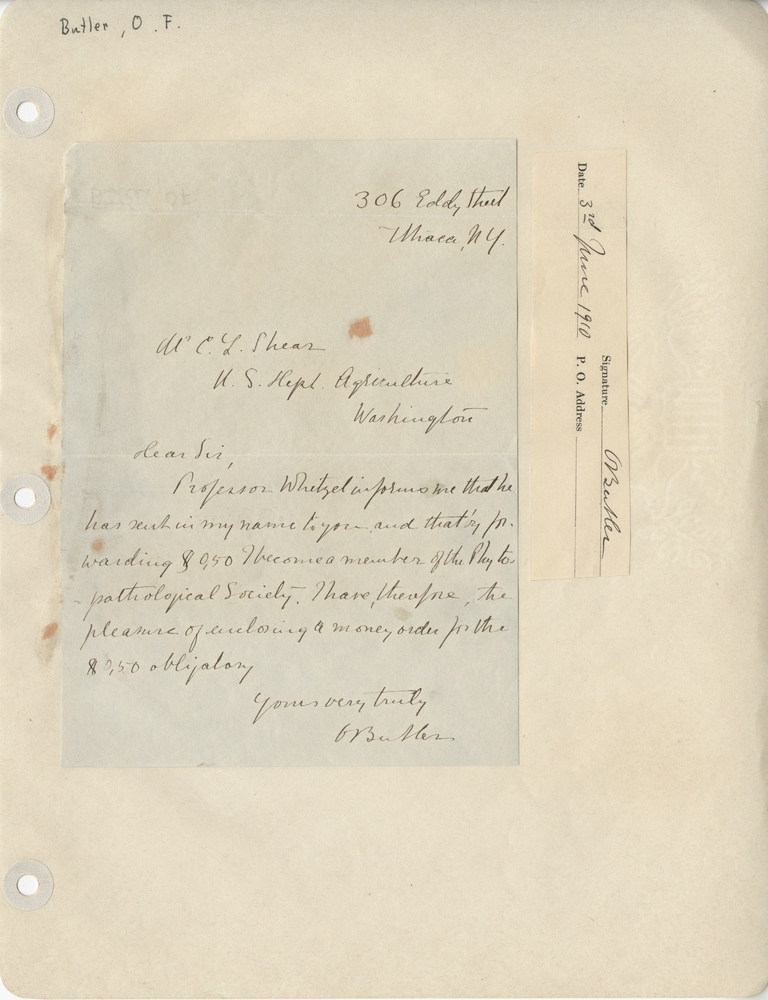 Butler, O. F.
306 Eddy Street
Ithaca, N.Y.
Mr C. L. Shear
U. S. Dept. Agriculture
Washington
Dear Sir,
Professor Whetzel informs me that he
has sent in my name to you and that by for-
warding $ 0,50 I become a member of the Phyto-
pathological Society. I have, therefore, the
pleasure of enclosing a money order for the
$ 0,50 obligatory
Yours very truly
O Butler
Date 3rd June 1910
P. O. Address
Signature O Butler